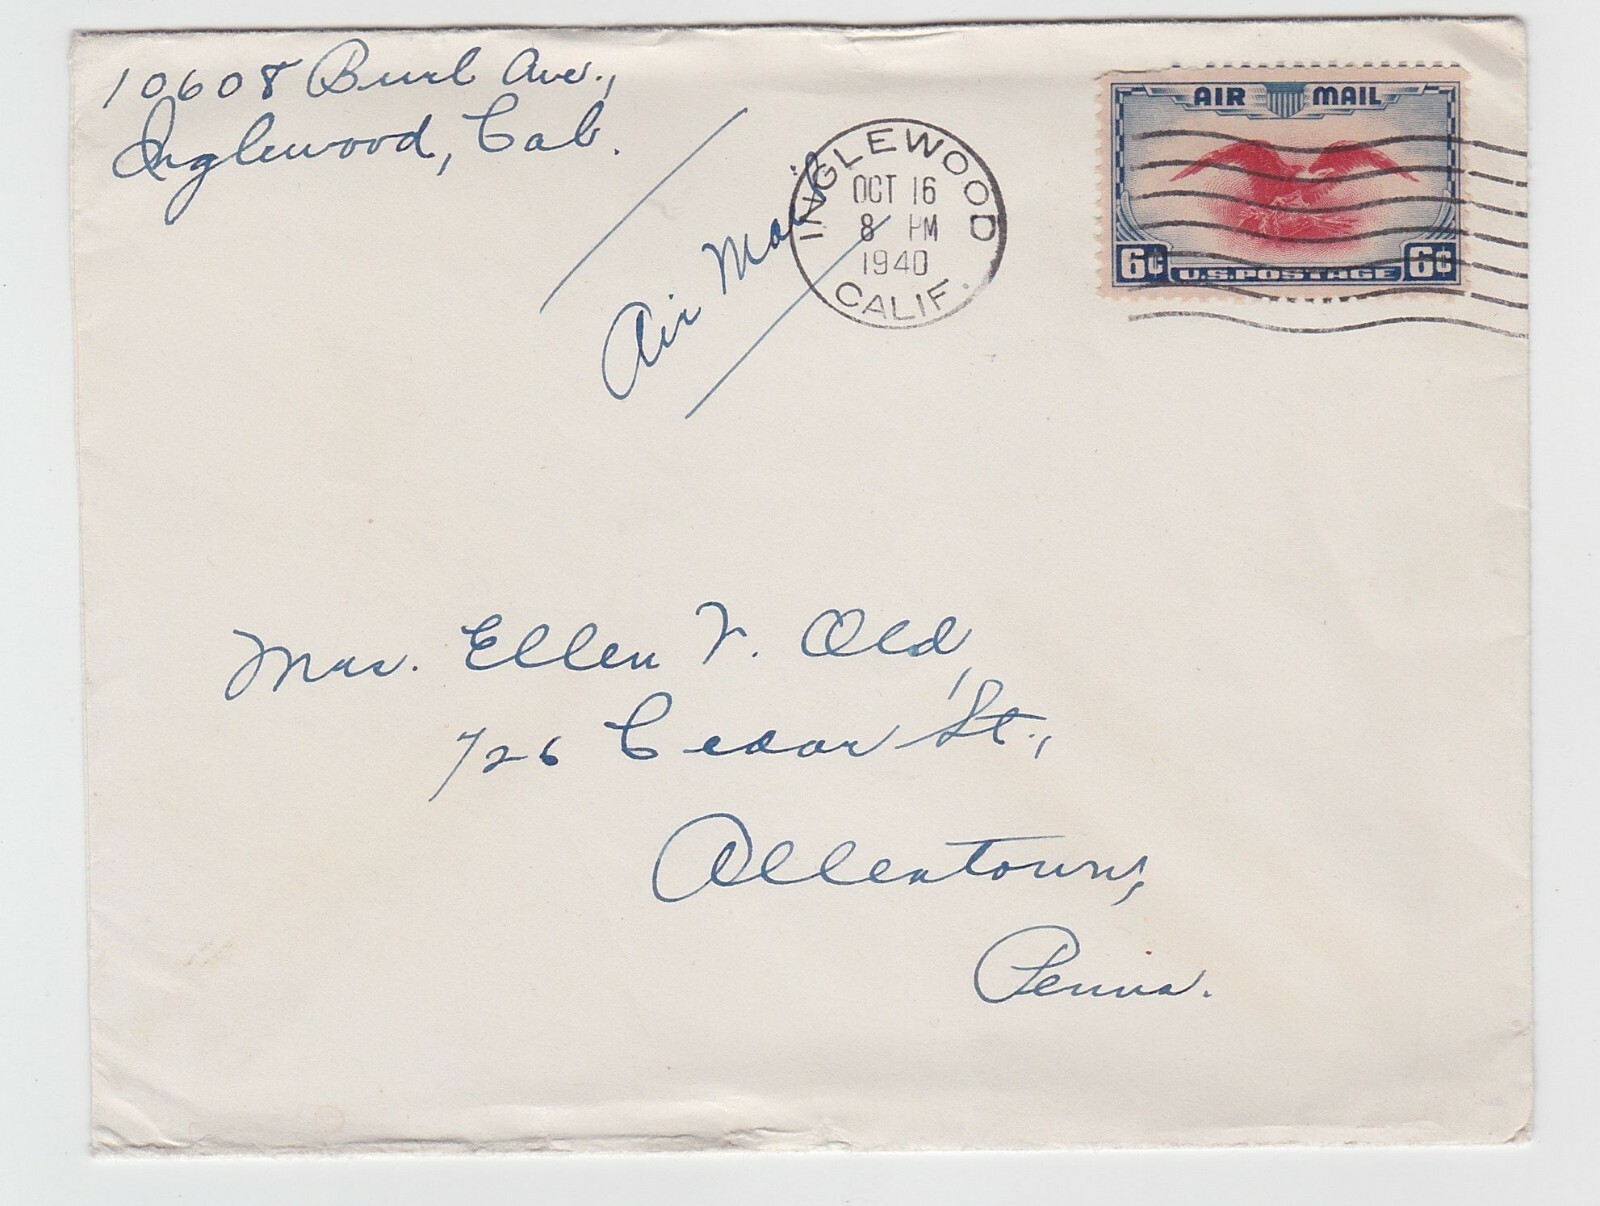 10608 Burl Ave.,
Inglewood, Cal.
Air Mail
INGLEWOOD
OCT 16
8 PM
1940
CALIF.
AIR MAIL
6¢ U.S. POSTAGE 6¢
Mrs. Ellen V. Old,
726 Cedar St.,
Allentown,
Penna.